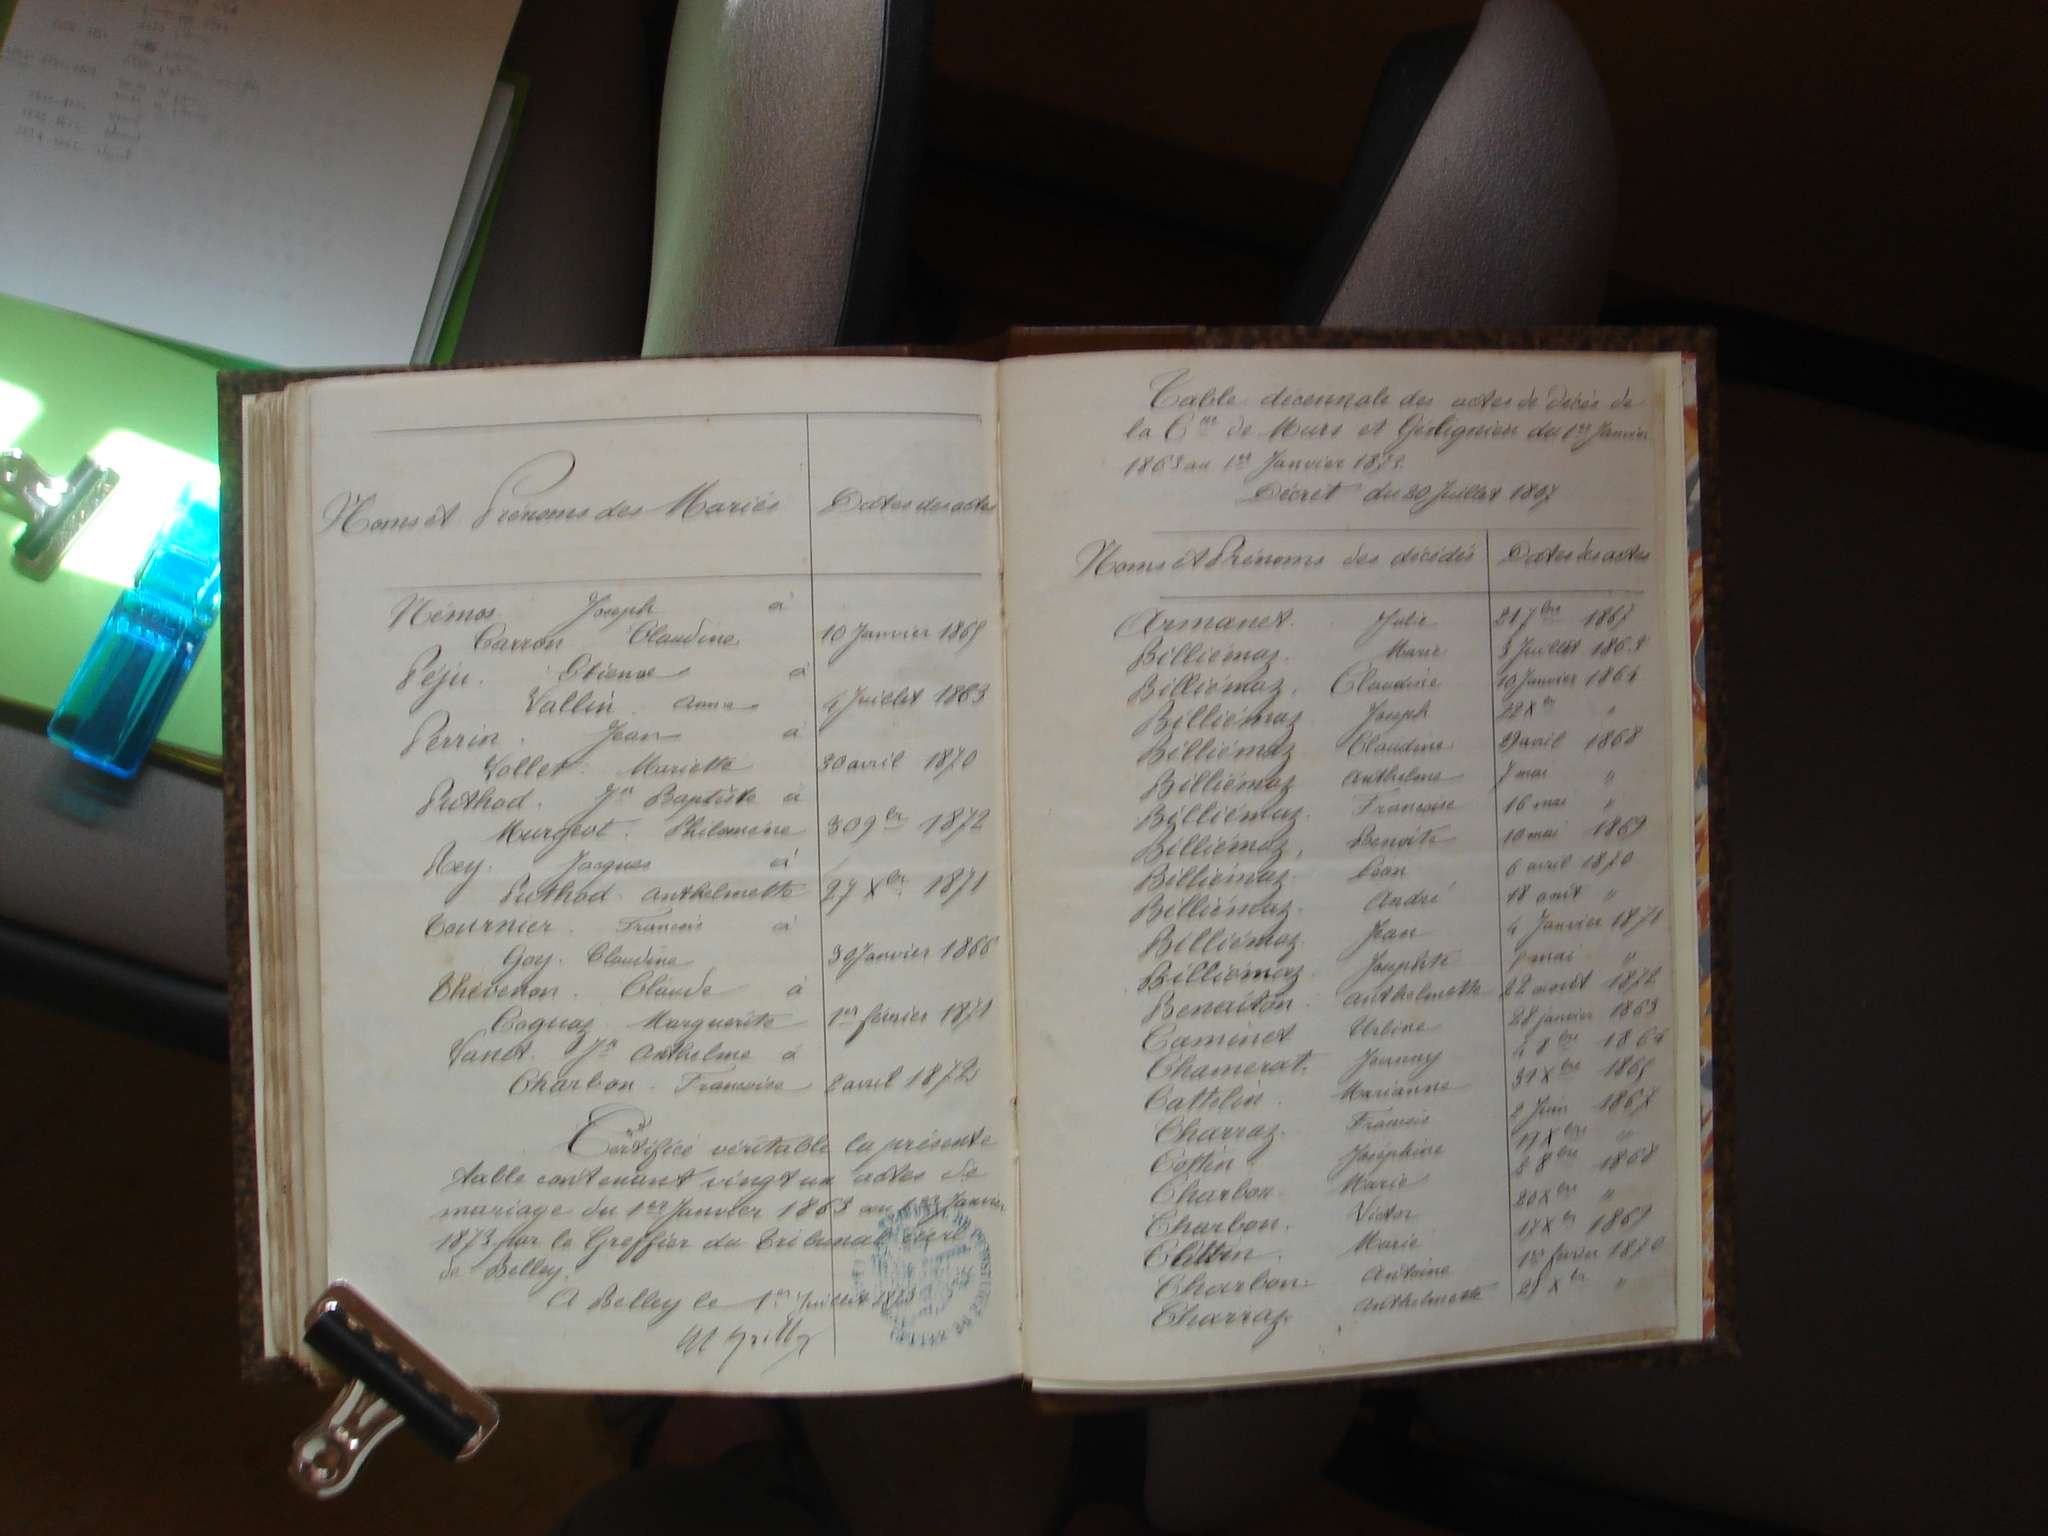 Noms et Prénoms des Mariés Dates des actes
Némoz Joseph à
Carron Claudine 10 Janvier 1865
Péju. Etienne à
Vallin Anna 4 Juillet 1863
Perrin. Jean à
Vollet Mariette 30 avril 1870
Puthod. Jn Baptiste à
Murgeot. Philomène 30 9bre 1872
Rey. Jacques à
Puthod. Anthelmette 27 Xbre 1871
Tournier. Francois à
Goy. Claudine 30 Janvier 1866
Thévenon. Claude à
Coquaz Marguerite 1er février 1871
Vanet. Jn Anthelme à
Charbon. Francoise 2 avril 1872
Certifié véritable la présente
table contenant vingt un actes de
mariage du 1er Janvier 1863 au 1er Janvier
1873 par le Greffier du Tribunal civil
de Belley.
A Belley le 1er Juillet 1873
Table décennale des actes de décès de
la Cne de Murs et Gélignieu du 1er Janvier
1863 au 1er Janvier 1873
Décret du 20 Juillet 1807
Noms et Prénoms des décédés Dates des actes
Armanet. Julie 21 7bre 1867
Billiémaz. Marie 3 Juillet 1863
Billiémaz. Claudine 10 Janvier 1864
Billiémaz Joseph 22 Xbre "
Billiémaz Claudine 29 avril 1868
Billiémaz Anthelme 7 mai "
Billiémaz. Francoise 16 mai "
Billiémaz. Benoite 10 mai 1869
Billiémaz. Léon 6 avril 1870
Billiémaz. André 18 août "
Billiémaz. Jean 4 Janvier 1871
Billiémaz Josephte mai "
Benaiton. Anthelmette 22 août 1872
Caminet Urbine 28 janvier 1863
Chamerat. Jeanny 4 8bre 1864
Cattelin. Marianne 31 Xbre 1865
Charraz. Francois 2 Juin 1867
Cottin. Joséphine 17 Xbre "
Charbon. Marie 2 8bre 1868
Charbon. Victor 20 Xbre "
Clettin. Marie 17 Xbre 1869
Charbon. Antoine 1er février 1870
Charraz. Anthelmette 25 Xbre "